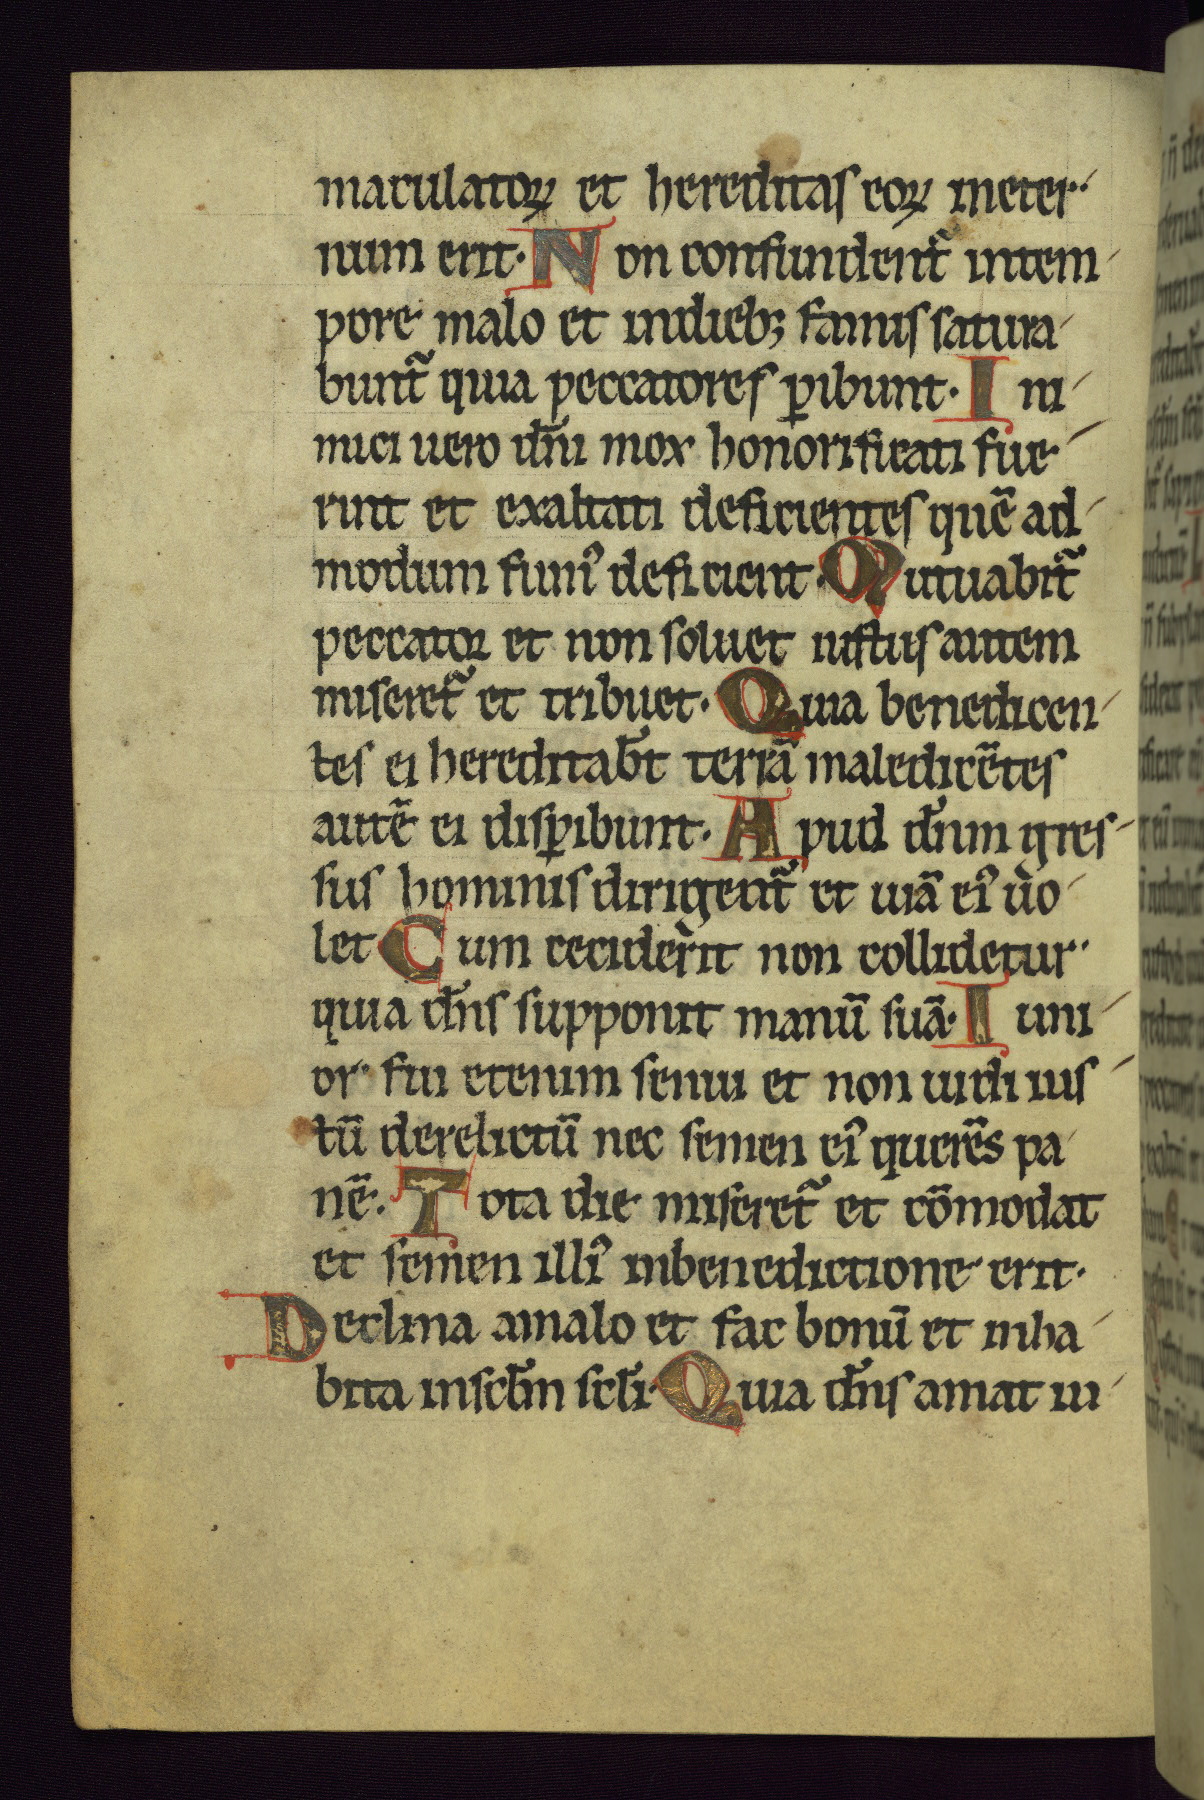 maculatoꝝ et hereditas eoꝝ ineter-
num erit· Non confundent᷑ intem-
pore malo et indieb; famis satura-
bunt᷑ quia peccatores ꝑibunt· Ini-
mici uero dn̄i mox honorificati fue-
rint et exaltati deficientes quē ad-
modum fumꝰ deficient· Mutuabit᷑
peccator et non soluet iustus autem
miseret᷑ et tribuet· Quia benedicen-
tes ei hereditab̄t terrā maledicētes
autē ei disꝑibunt· Apud dn̄m gres-
sus hominis dirigent᷑ et uiā eiꝰ uͦo-
let Cum cecider̀it non collidetur·
quia dn̄s supponit manū suā· Iuni-
or fui etenim senui et non uidi ius-
tū derelictū nec semen eiꝰ querēs pa-
nē· Tota die miseret᷑ et cōmodat
et semen illiꝰ inbenedictione erit·
Declina amalo et fac bonū et inha-
bita insclm̄ scli̅· Quia dn̄s amat iu-